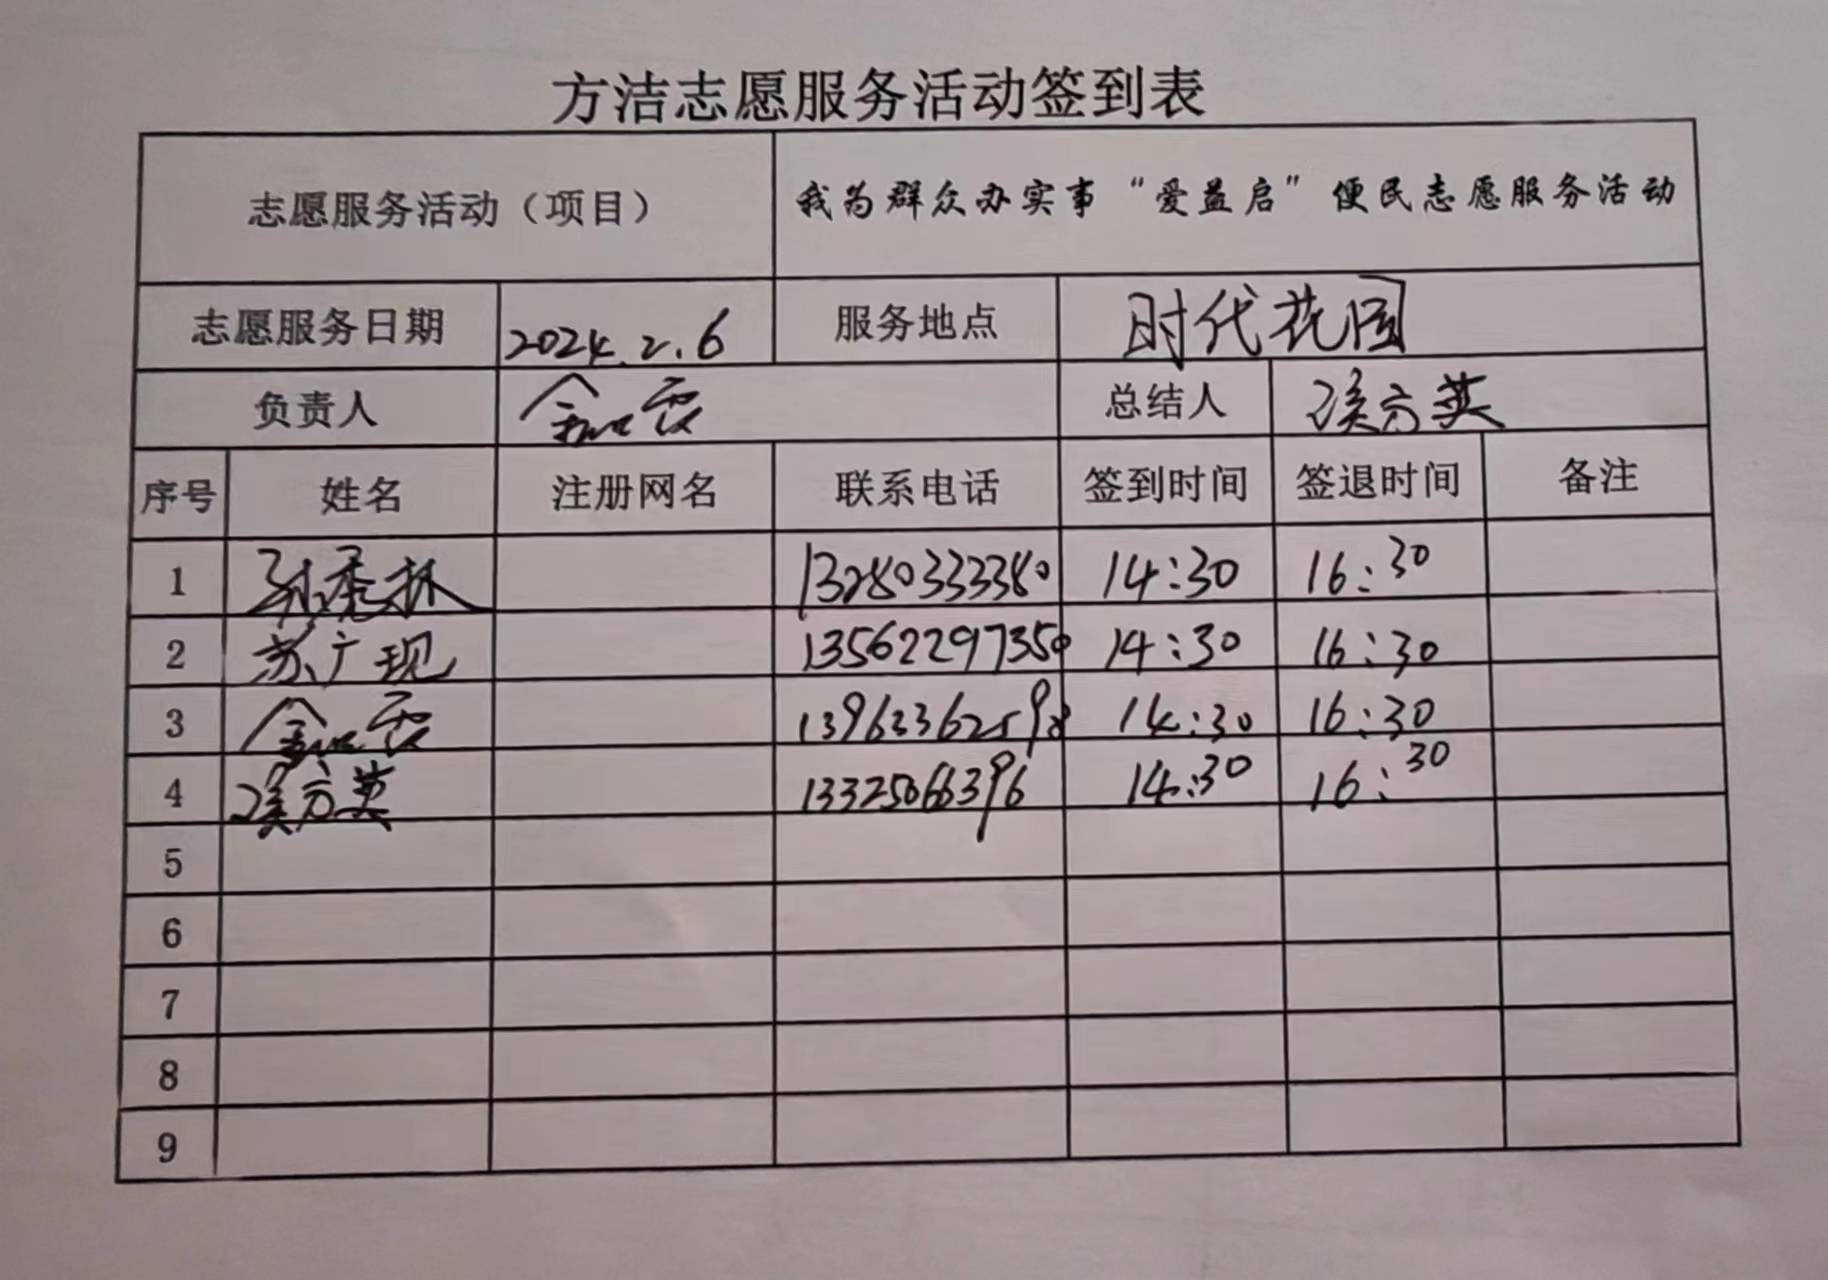 方洁志愿服务活动签到表
志愿服务活动（项目） 我为群众办实事“爱益启”便民志愿服务活动
志愿服务日期 2024.2.6 服务地点 时代花园
负责人 总结人 侯方英
序号 姓名 注册网名 联系电话 签到时间 签退时间 备注
1 13280333380 14:30 16:30
2 苏广现 13562297350 14:30 16:30
3 14:30 16:30
4 侯方英 13325066396 14:30 16:30
5
6
7
8
9